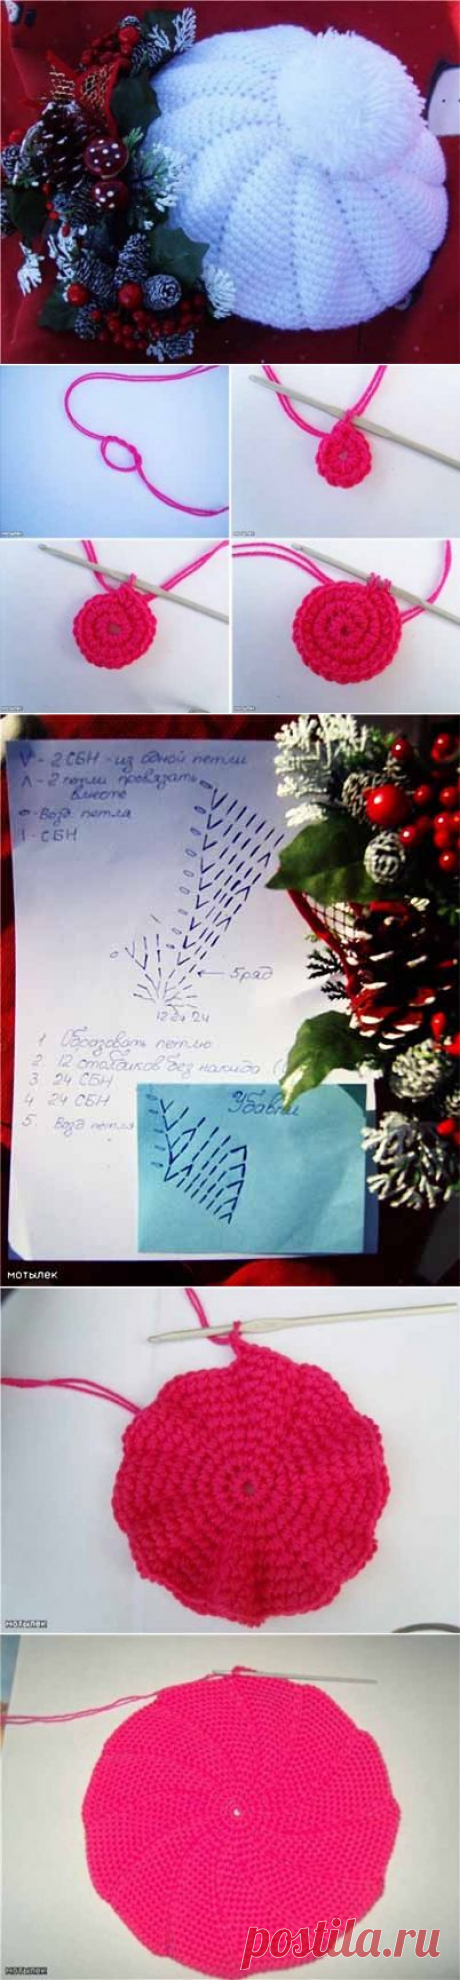 мотылек
мотылек
мотылек
мотылек
V - 2 СБН - из одной петли
Λ - 2 петли провязать
вместе
0 - Возд. петля
I - СБН
5 ряд
12 24 24
1 Образовать петлю
2. 12 столбиков без накида
3. 24 СБН
4 24 СБН
5. Возд петля
Убавки
мотылек
мотылек
мотылек
postila.ru